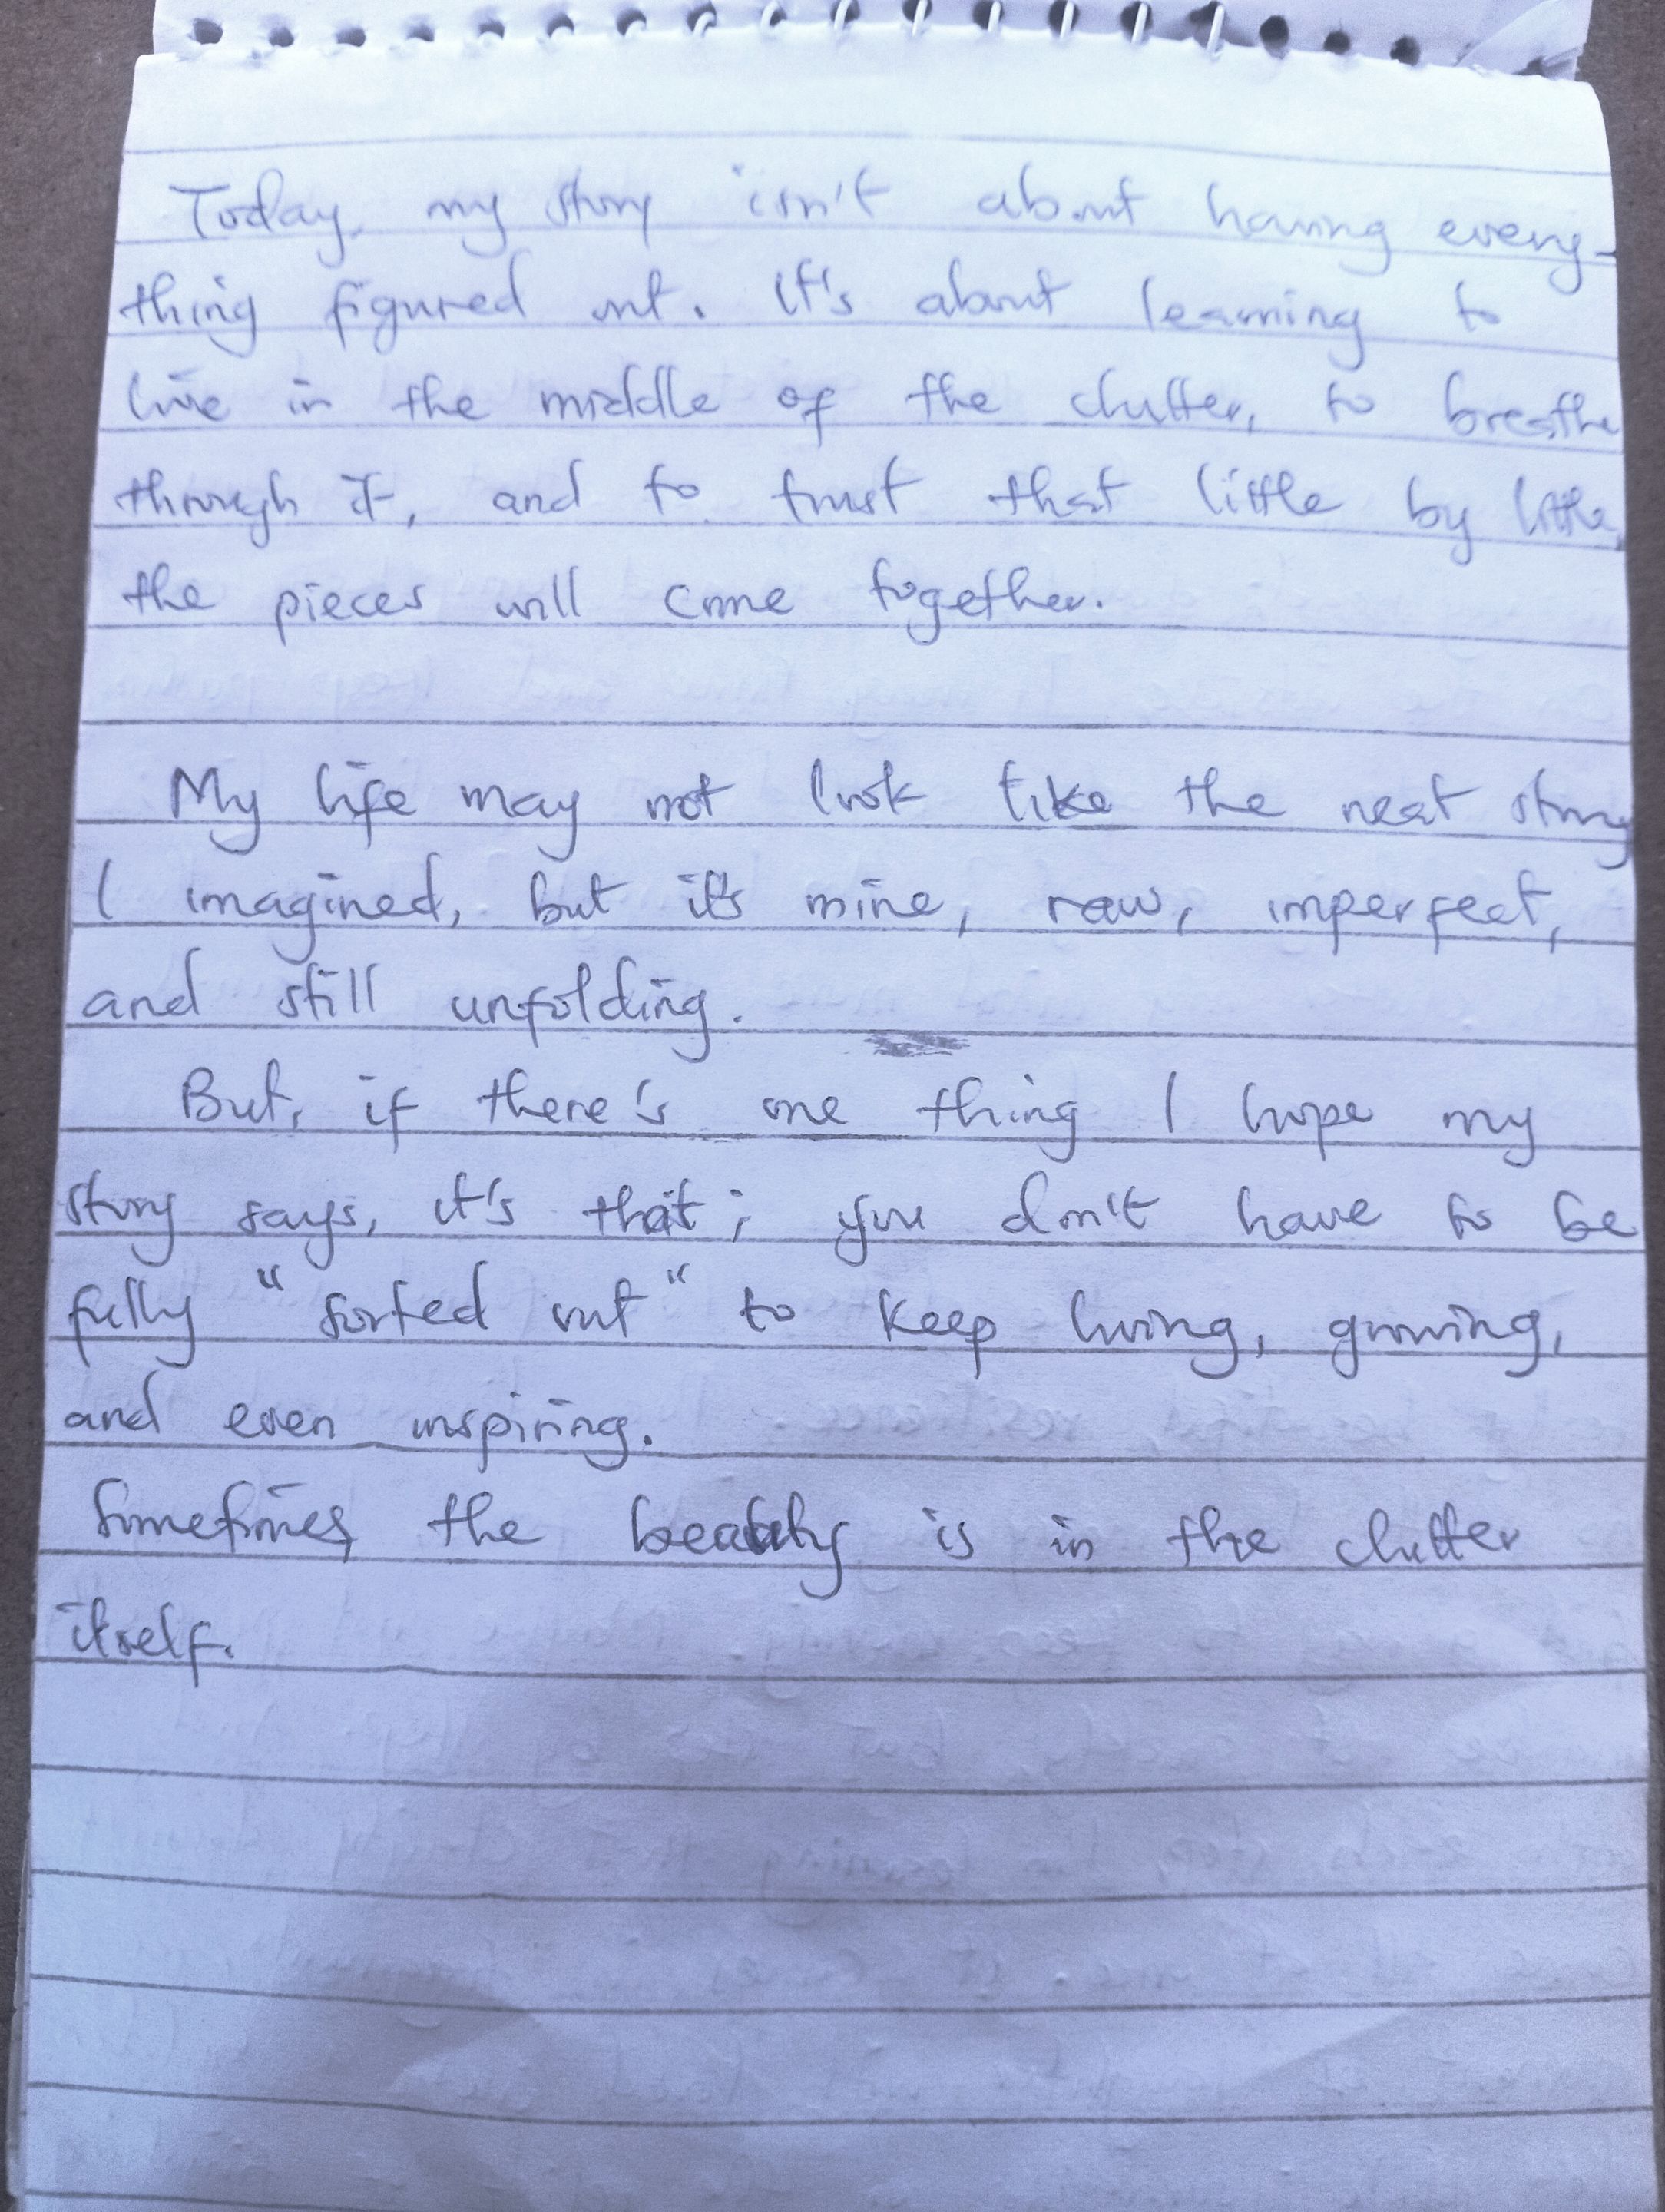 Today, my story isn't about having every-
thing figured out. It's about learning to
live in the middle of the clutter, to breathe
through it, and to trust that little by little,
the pieces will come together.
My life may not look like the neat story
I imagined, but it's mine, raw, imperfect,
and still unfolding.
But, if there's one thing I hope my
story says, it's that; you don't have to be
fully "sorted out" to keep living, growing,
and even inspiring.
Sometimes the beauty is in the clutter
itself.